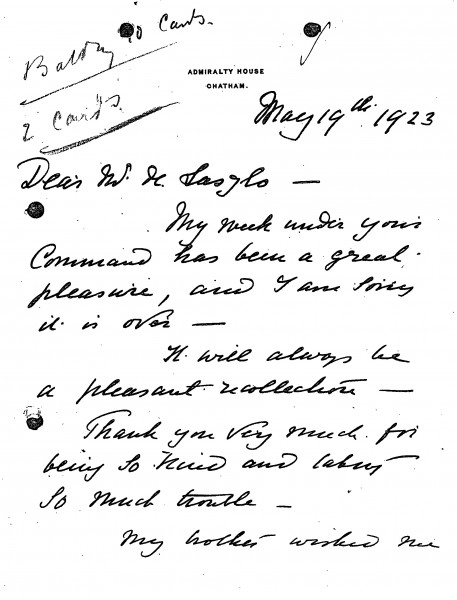 10 Cards.
2 Cards.
ADMIRALTY HOUSE
CHATHAM.
May 19th. 1923
Dear Mr. de Laszlo —
My week under your
Command has been a great
pleasure, and I am sorry
it is over —
It will always be
a pleasant recollection —
Thank you very much for
being so kind and taking
so much trouble —
My brother wished me